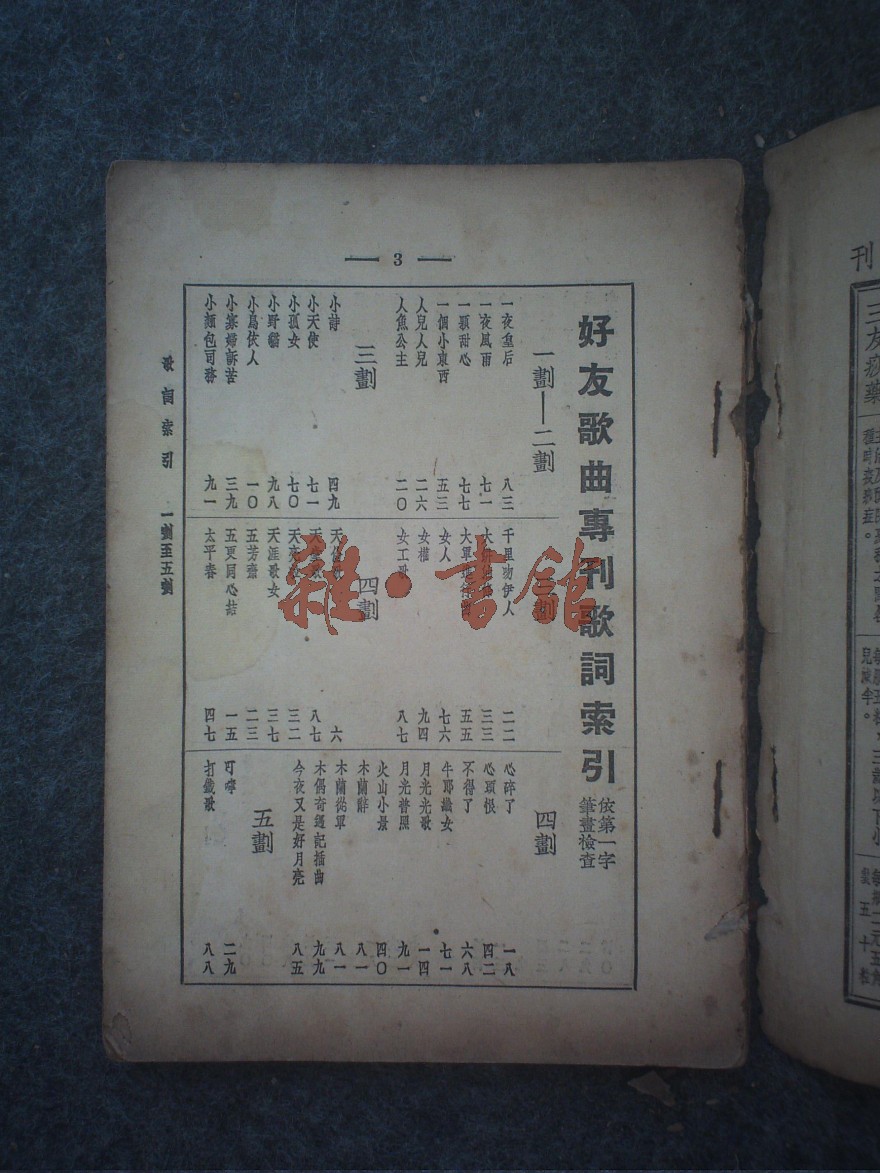 — 3 —
好友歌曲專刊歌詞索引
依第一字
筆畫檢查
一劃—二劃
一夜皇后 八三
一夜風雨 七一
一顆甜心 七七
一個小東西 五三
人兒人兒 二六
人魚公主 二〇
三劃
小詩 四九
小天使 七一
小孤女 七〇
小野貓 九八
小鳥依人 一〇
小寡婦訴苦 三九
小麵包司務 九一
三劃
千里吻伊人 二二
三三
五五
女人 七六
女權 九四
女工歌 八七
四劃
六
八七
三二
天涯歌女 三七
五芳齋 二三
五更同心結 一五
太平春 四七
四劃
心碎了 一八
心頭恨 四二
不得了 六八
牛郎織女 七一
月光光歌 一四
月光普照 九一
火山小景 四〇
木蘭辭 八一
木蘭從軍 八一
木偶奇遇記插曲 九九
今夜又是好月亮 八五
五劃
叮嚀 二九
打鐵歌 八八
歌詞索引 一劃至五劃
雜·書館
刊